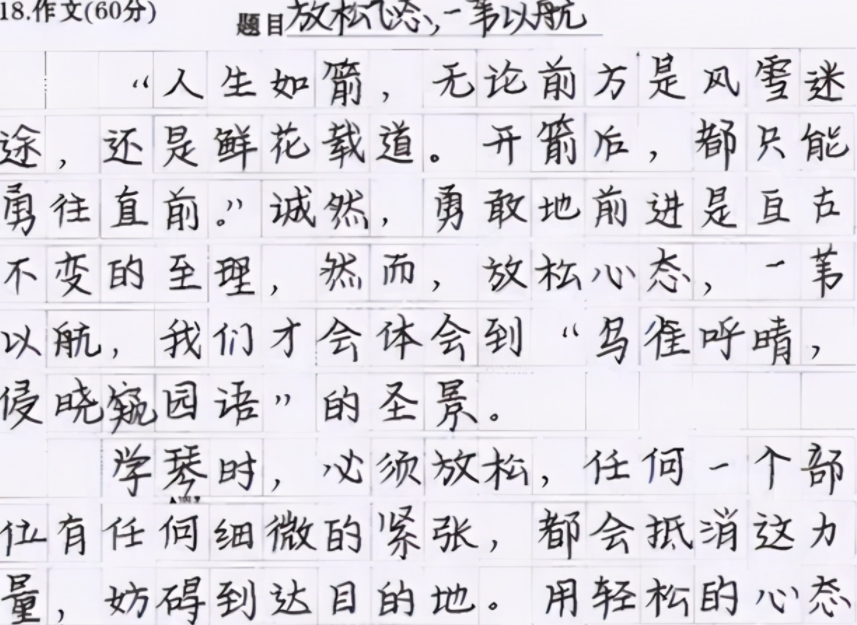 18.作文(60分) 题目 放松心态,一苇以航
“人生如箭，无论前方是风雪迷
途，还是鲜花载道。开箭后，都只能
勇往直前。”诚然，勇敢地前进是亘古
不变的至理，然而，放松心态，一苇
以航，我们才会体会到“鸟雀呼晴，
侵晓窥园语”的圣景。
学琴时，必须放松，任何一个部
位有任何细微的紧张，都会抵消这力
量，妨碍到达目的地。用轻松的心态